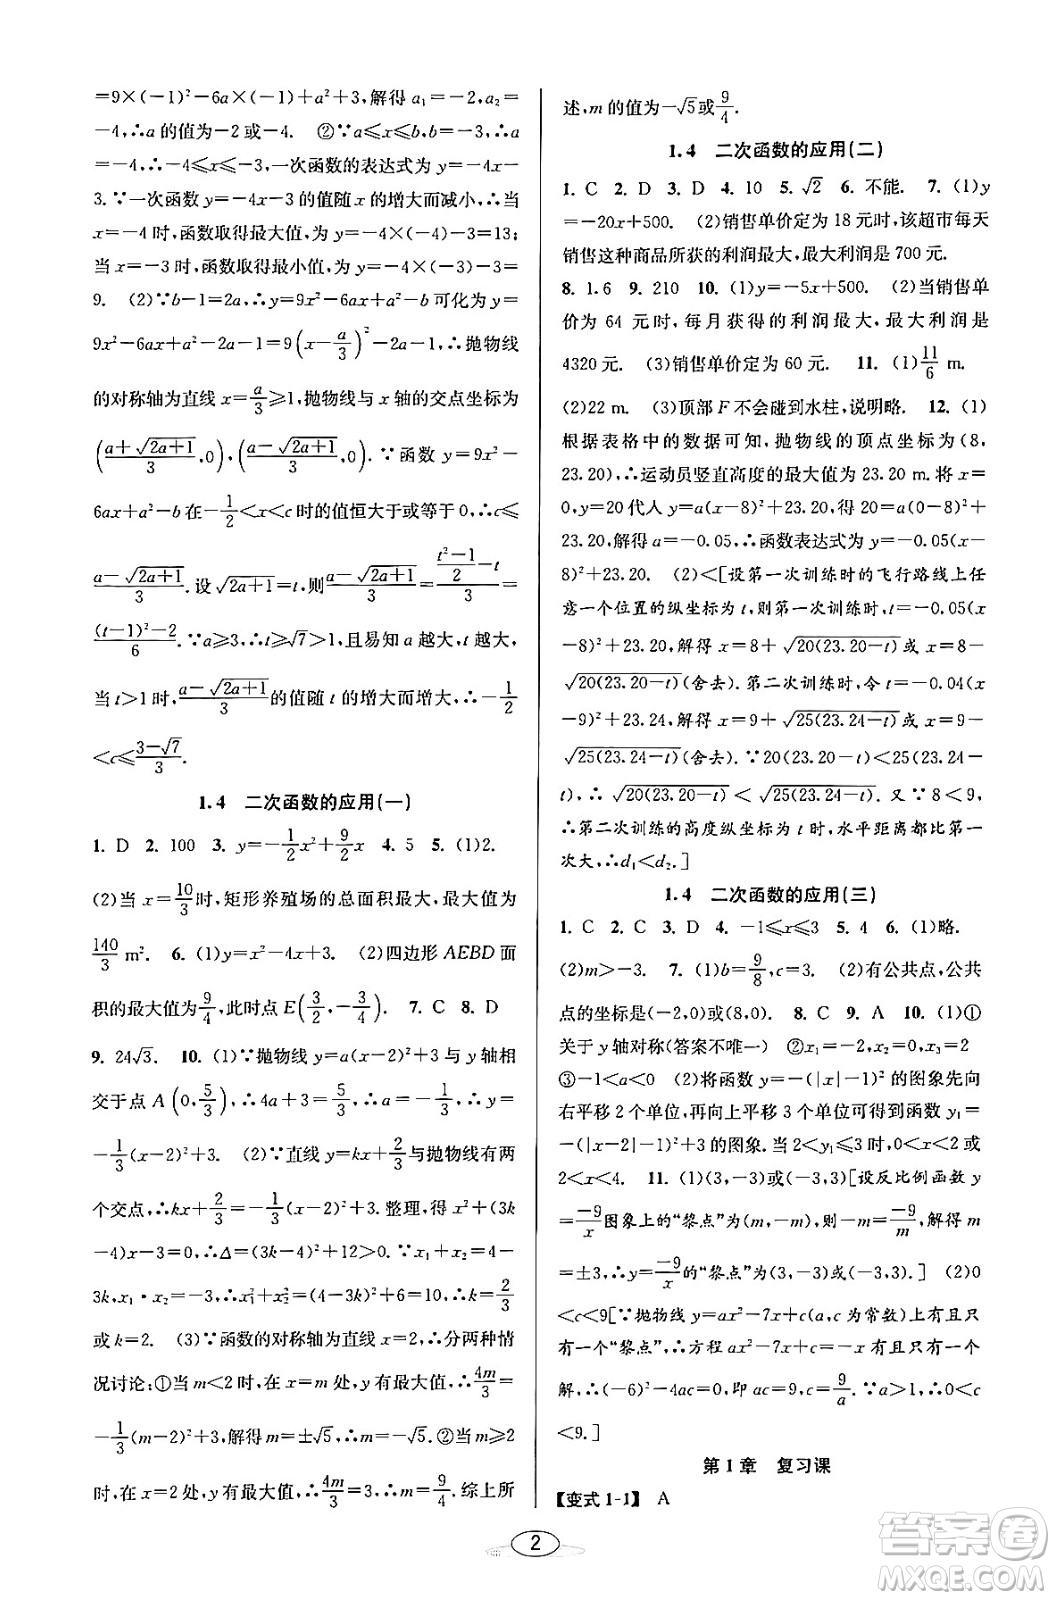 =9×(-1)²-6a×(-1)+a²+3,解得 a₁=-2,a₂=
-4,∴a 的值为-2 或-4. ②∵a≤x≤b,b=-3,∴a
=-4,∴-4≤x≤-3,一次函数的表达式为 y=-4x-
3.∵一次函数 y=-4x-3 的值随 x 的增大而减小,∴当 x
=-4 时,函数取得最大值,为 y=-4×(-4)-3=13;
当 x=-3 时,函数取得最小值,为 y=-4×(-3)-3=
9. (2)∵b-1=2a,∴y=9x²-6ax+a²-b 可化为 y=
9x²-6ax+a²-2a-1=9(x-a/3)²-2a-1,∴抛物线
的对称轴为直线 x=a/3≥1,抛物线与 x 轴的交点坐标为
((a+√(2a+1))/3,0),((a-√(2a+1))/3,0).∵函数 y=9x²-
6ax+a²-b 在-1/2<x<c 时的值恒大于或等于 0,∴c≤
(a-√(2a+1))/3.设√(2a+1)=t,则(a-√(2a+1))/3=((t²-1)/2-t)/3=
((t-1)²-2)/6.∵a≥3,∴t≥√7>1,且易知 a 越大,t 越大,
当 t>1 时,(a-√(2a+1))/3的值随 t 的增大而增大,∴-1/2
<c≤(3-√7)/3.
1.4 二次函数的应用(一)
1. D 2. 100 3. y=-1/2x²+9/2x 4. 5 5. (1)2.
(2)当 x=10/3时,矩形养殖场的总面积最大,最大值为
140/3 m². 6. (1)y=x²-4x+3. (2)四边形 AEBD 面
积的最大值为9/4,此时点 E(3/2,-3/4). 7. C 8. D
9. 24√3. 10. (1)∵抛物线 y=a(x-2)²+3 与 y 轴相
交于点 A(0,5/3),∴4a+3=5/3,∴a=-1/3,∴y=
-1/3(x-2)²+3. (2)∵直线 y=kx+2/3与抛物线有两
个交点,∴kx+2/3=-1/3(x-2)²+3,整理,得 x²+(3k
-4)x-3=0,∴Δ=(3k-4)²+12>0.∵x₁+x₂=4-
3k,x₁·x₂=-3,∴x₁²+x₂²=(4-3k)²+6=10,∴k=2/3
或 k=2. (3)∵函数的对称轴为直线 x=2,∴分两种情
况讨论:①当 m<2 时,在 x=m 处,y 有最大值,∴4m/3=
-1/3(m-2)²+3,解得 m=±√5,∴m=-√5.②当 m≥2
时,在 x=2 处,y 有最大值,∴4m/3=3,∴m=9/4.综上所
述,m 的值为-√5或9/4.
1.4 二次函数的应用(二)
1. C 2. D 3. D 4. 10 5. √2 6. 不能. 7. (1)y
=-20x+500. (2)销售单价定为 18 元时,该超市每天
销售这种商品所获的利润最大,最大利润是 700 元.
8. 1.6 9. 210 10. (1)y=-5x+500. (2)当销售单
价为 64 元时,每月获得的利润最大,最大利润是
4320 元. (3)销售单价定为 60 元. 11. (1)11/6 m.
(2)22 m. (3)顶部 F 不会碰到水柱,说明略. 12. (1)
根据表格中的数据可知,抛物线的顶点坐标为(8,
23.20),∴运动员竖直高度的最大值为 23.20 m.将 x=
0,y=20 代入 y=a(x-8)²+23.20,得 20=a(0-8)²+
23.20,解得 a=-0.05,∴函数表达式为 y=-0.05(x-
8)²+23.20. (2)<[设第一次训练时的飞行路线上任
意一个位置的纵坐标为 t,则第一次训练时,t=-0.05(x
-8)²+23.20,解得 x=8+√(20(23.20-t))或 x=8-
√(20(23.20-t))(舍去).第二次训练时,令 t=-0.04(x
-9)²+23.24,解得 x=9+√(25(23.24-t))或 x=9-
√(25(23.24-t))(舍去).∵20(23.20-t)<25(23.24-
t),∴√(20(23.20-t))<√(25(23.24-t)).又∵8<9,
∴第二次训练的高度纵坐标为 t 时,水平距离都比第一
次大,∴d₁<d₂.]
1.4 二次函数的应用(三)
1. C 2. C 3. D 4. -1≤x≤3 5. 4 6. (1)略.
(2)m>-3. 7. (1)b=9/8,c=3. (2)有公共点,公共
点的坐标是(-2,0)或(8,0). 8. C 9. A 10. (1)①
关于 y 轴对称(答案不唯一) ②x₁=-2,x₂=0,x₃=2
③-1<a<0 (2)将函数 y=-(|x|-1)²的图象先向
右平移 2 个单位,再向上平移 3 个单位可得到函数 y₁=
-(|x-2|-1)²+3 的图象.当 2<y₁≤3 时,0<x<2 或
2<x<4. 11. (1)(3,-3)或(-3,3)[设反比例函数 y=
-9/x图象上的“黎点”为(m,-m),则-m=-9/m,解得 m
=±3,∴y=-9/x的“黎点”为(3,-3)或(-3,3).] (2)0
<c<9[∵抛物线 y=ax²-7x+c(a,c 为常数)上有且只
有一个“黎点”,∴方程 ax²-7x+c=-x 有且只有一个
解,∴(-6)²-4ac=0,即 ac=9,c=9/a.∵a>1,∴0<c
<9.]
第 1 章 复习课
【变式 1-1】 A
2
答案圈
MXQE.COM